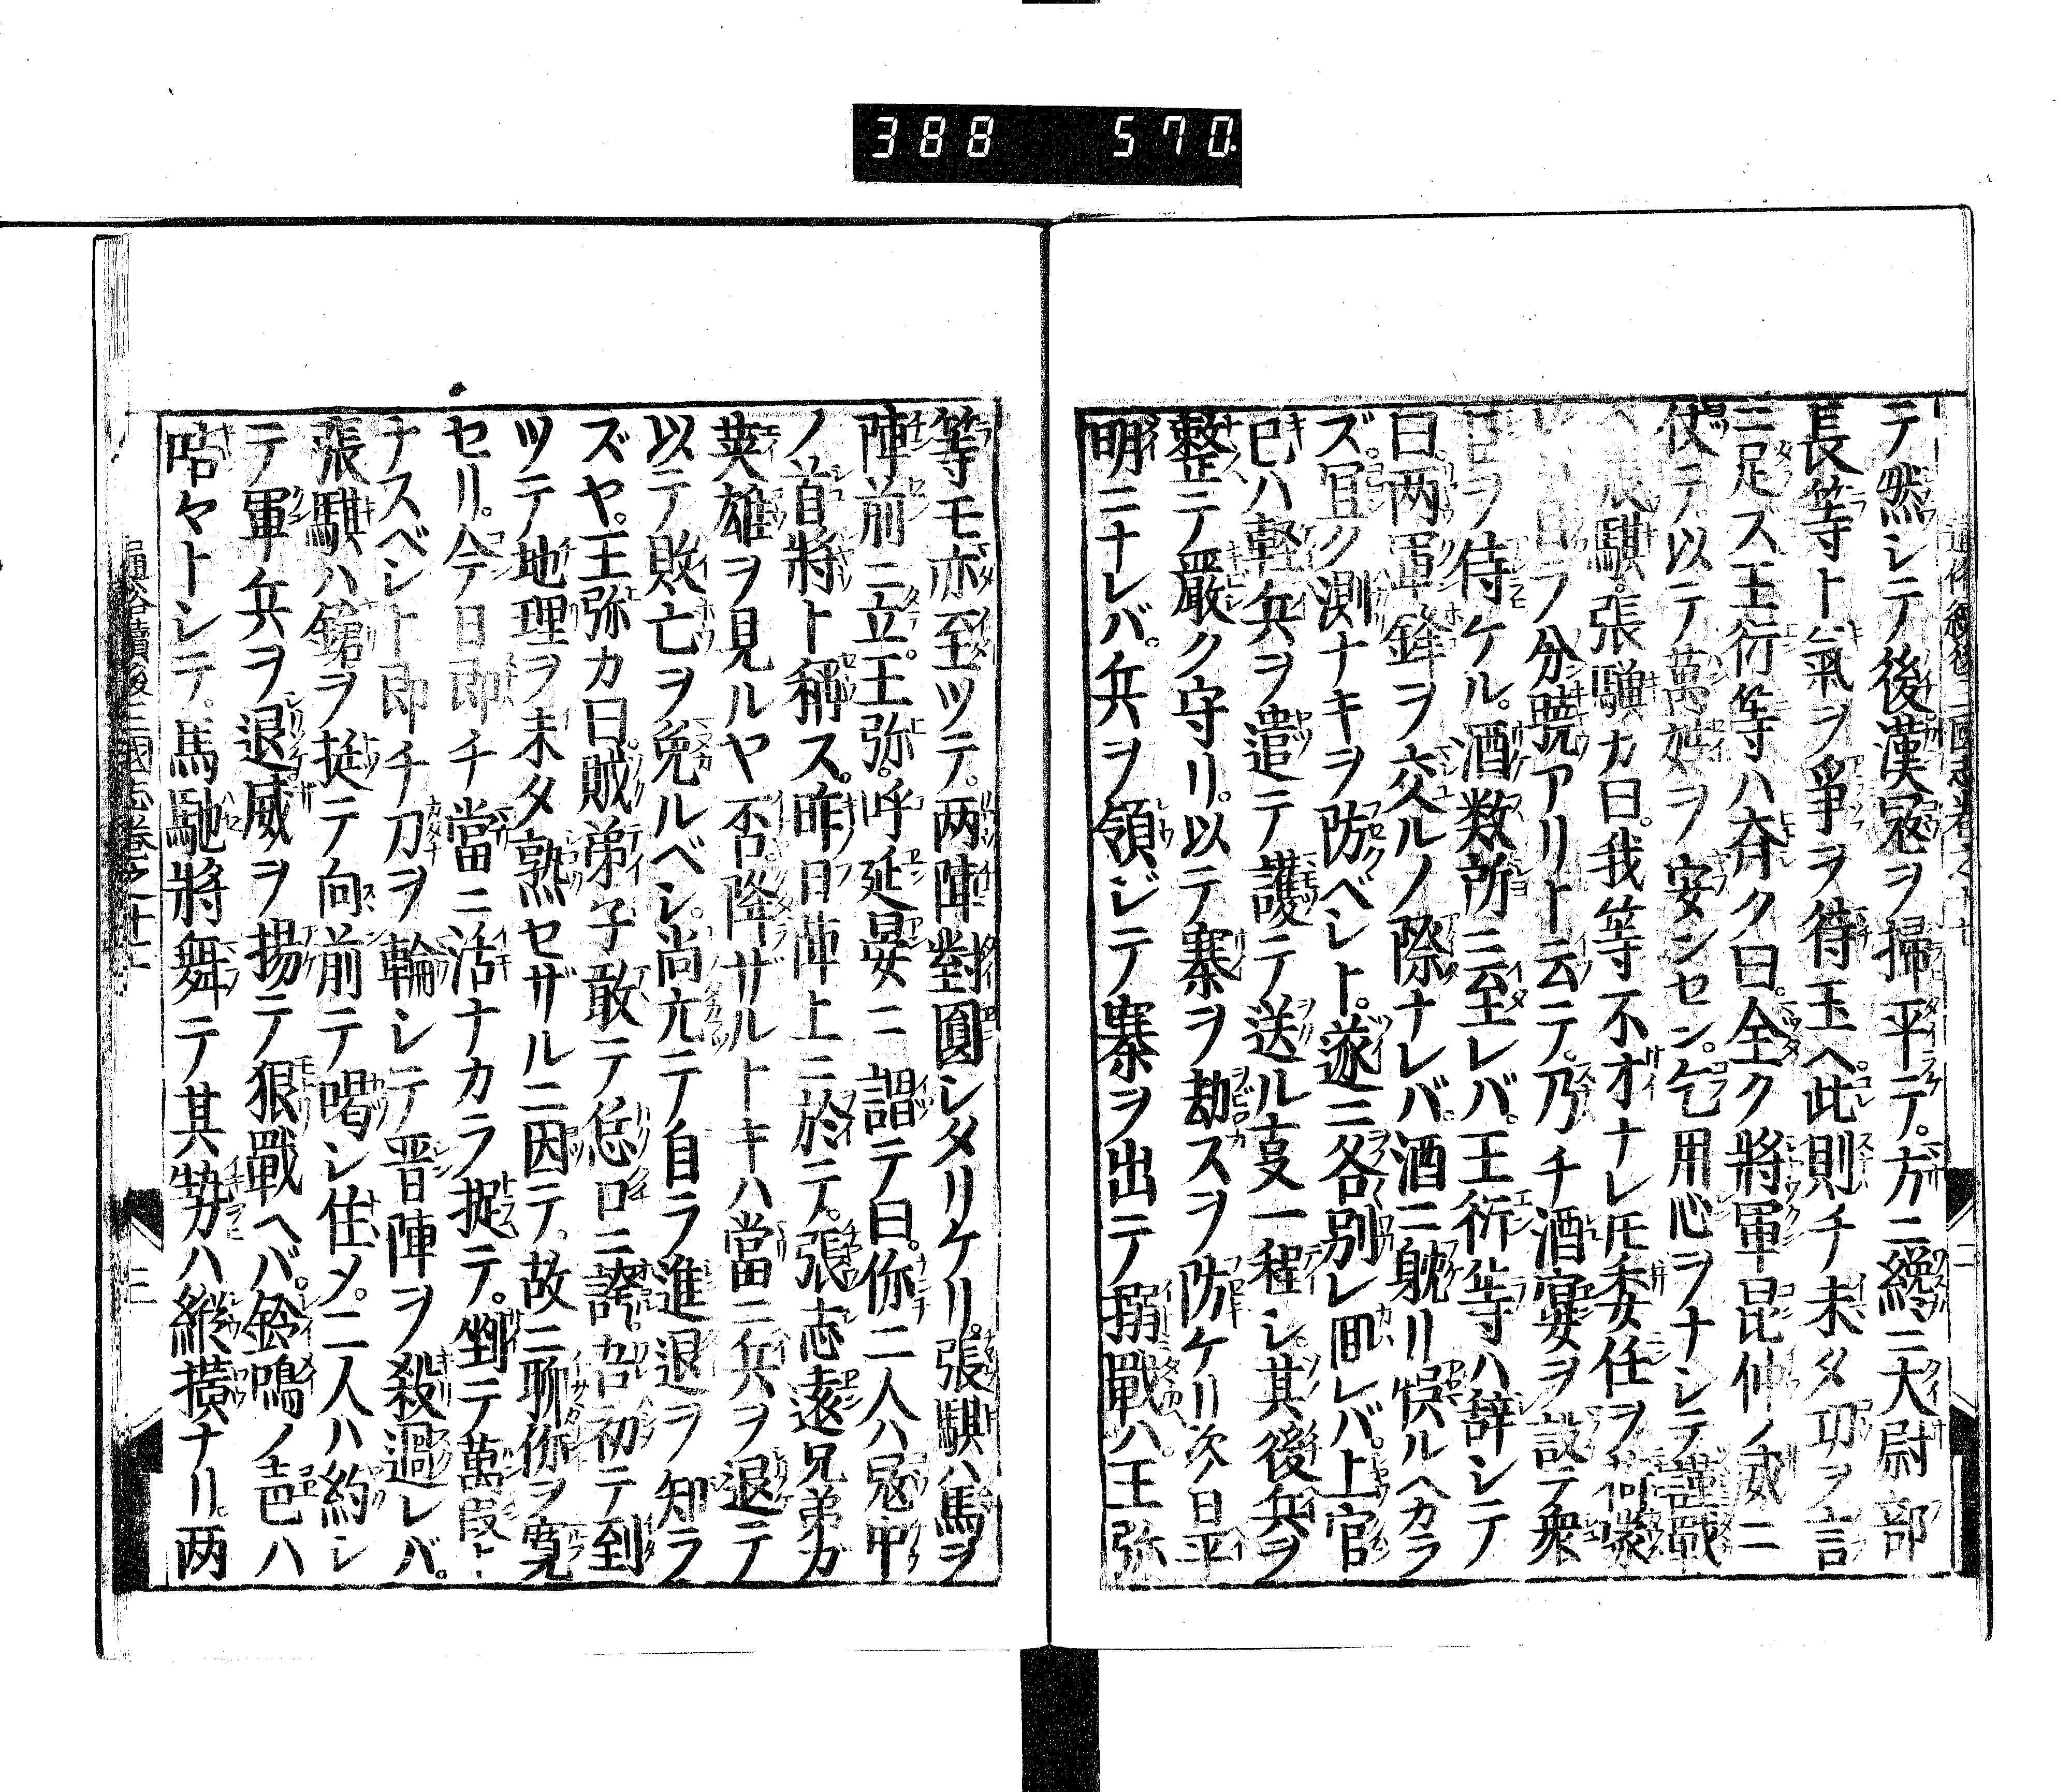 388 570
テ然シテ後漢冦ヲ掃平テ。方ニ纔ニ大尉部
長等ト氣ヲ爭ヲ待玉ヘ此則チ未タ功ヲ言
ニ足ス王衍等ハ斉ク曰。全ク將軍昆仲ノ威ニ
仗テ。以テ萬姓ヲ安ンセン。乞用心ヲナシテ謹戰
張騏。張驥カ曰。我等不才ナレ𪜈委任ヲ
ラ分暁アリト云テ。乃チ酒宴ヲ設テ衆
官ヲ待ケル。酒数所ニ至レバ。王衍等ハ辞シテ
曰。两軍鋒ヲ交ルノ際ナレバ。酒ニ躭リ悞ルヘカラ
ズ。冝ク測ナキヲ防ベシト。遂ニ各別レ回レバ。上官
巳ハ軽兵ヲ遣テ護テ送ル支一程シ。其後兵ヲ
整テ嚴ク守リ。以テ寨ヲ劫スヲ防ケリ次ノ日平
明ニナレバ。兵ヲ領ジテ寨ヲ出テ搦戰ハ。王弥
等モ亦至ツテ。两陣對圓シメリケリ。張騏ハ馬ヲ
陣前ニ立。王弥。呼延晏ニ謂テ曰。你二人ハ冦中
ノ首將ト稱ス。昨日陣上ニ於テ。張志遠兄弟ガ
英雄ヲ見ルヤ否。降ザルトキハ當ニ兵ヲ退テ
以テ敗亡ヲ免ルベシ。尚亢テ自ラ進退ヲ知ラ
ズヤ。王弥カ曰。賊弟子敢テ恁口ニ誇。吾初テ到
ツテ地理ヲ未タ熟セザルニ因テ。故ニ聊你ヲ寛
セリ。今日即チ當ニ活ナカラ捉テ。剉テ萬段ト
ナスベシト即チ刀ヲ輪シテ晋陣ヲ殺過レバ。
張騏ハ鎗ヲ挺テ向前テ喝シ住メ。二人ハ約シ
テ軍兵ヲ退威ヲ揚テ狠戰ヘバ。鈴鳴ノ声ハ
喑々トシテ。馬馳將舞テ其勢ハ縱橫ナリ。两
通俗續後三國志卷之十七
三